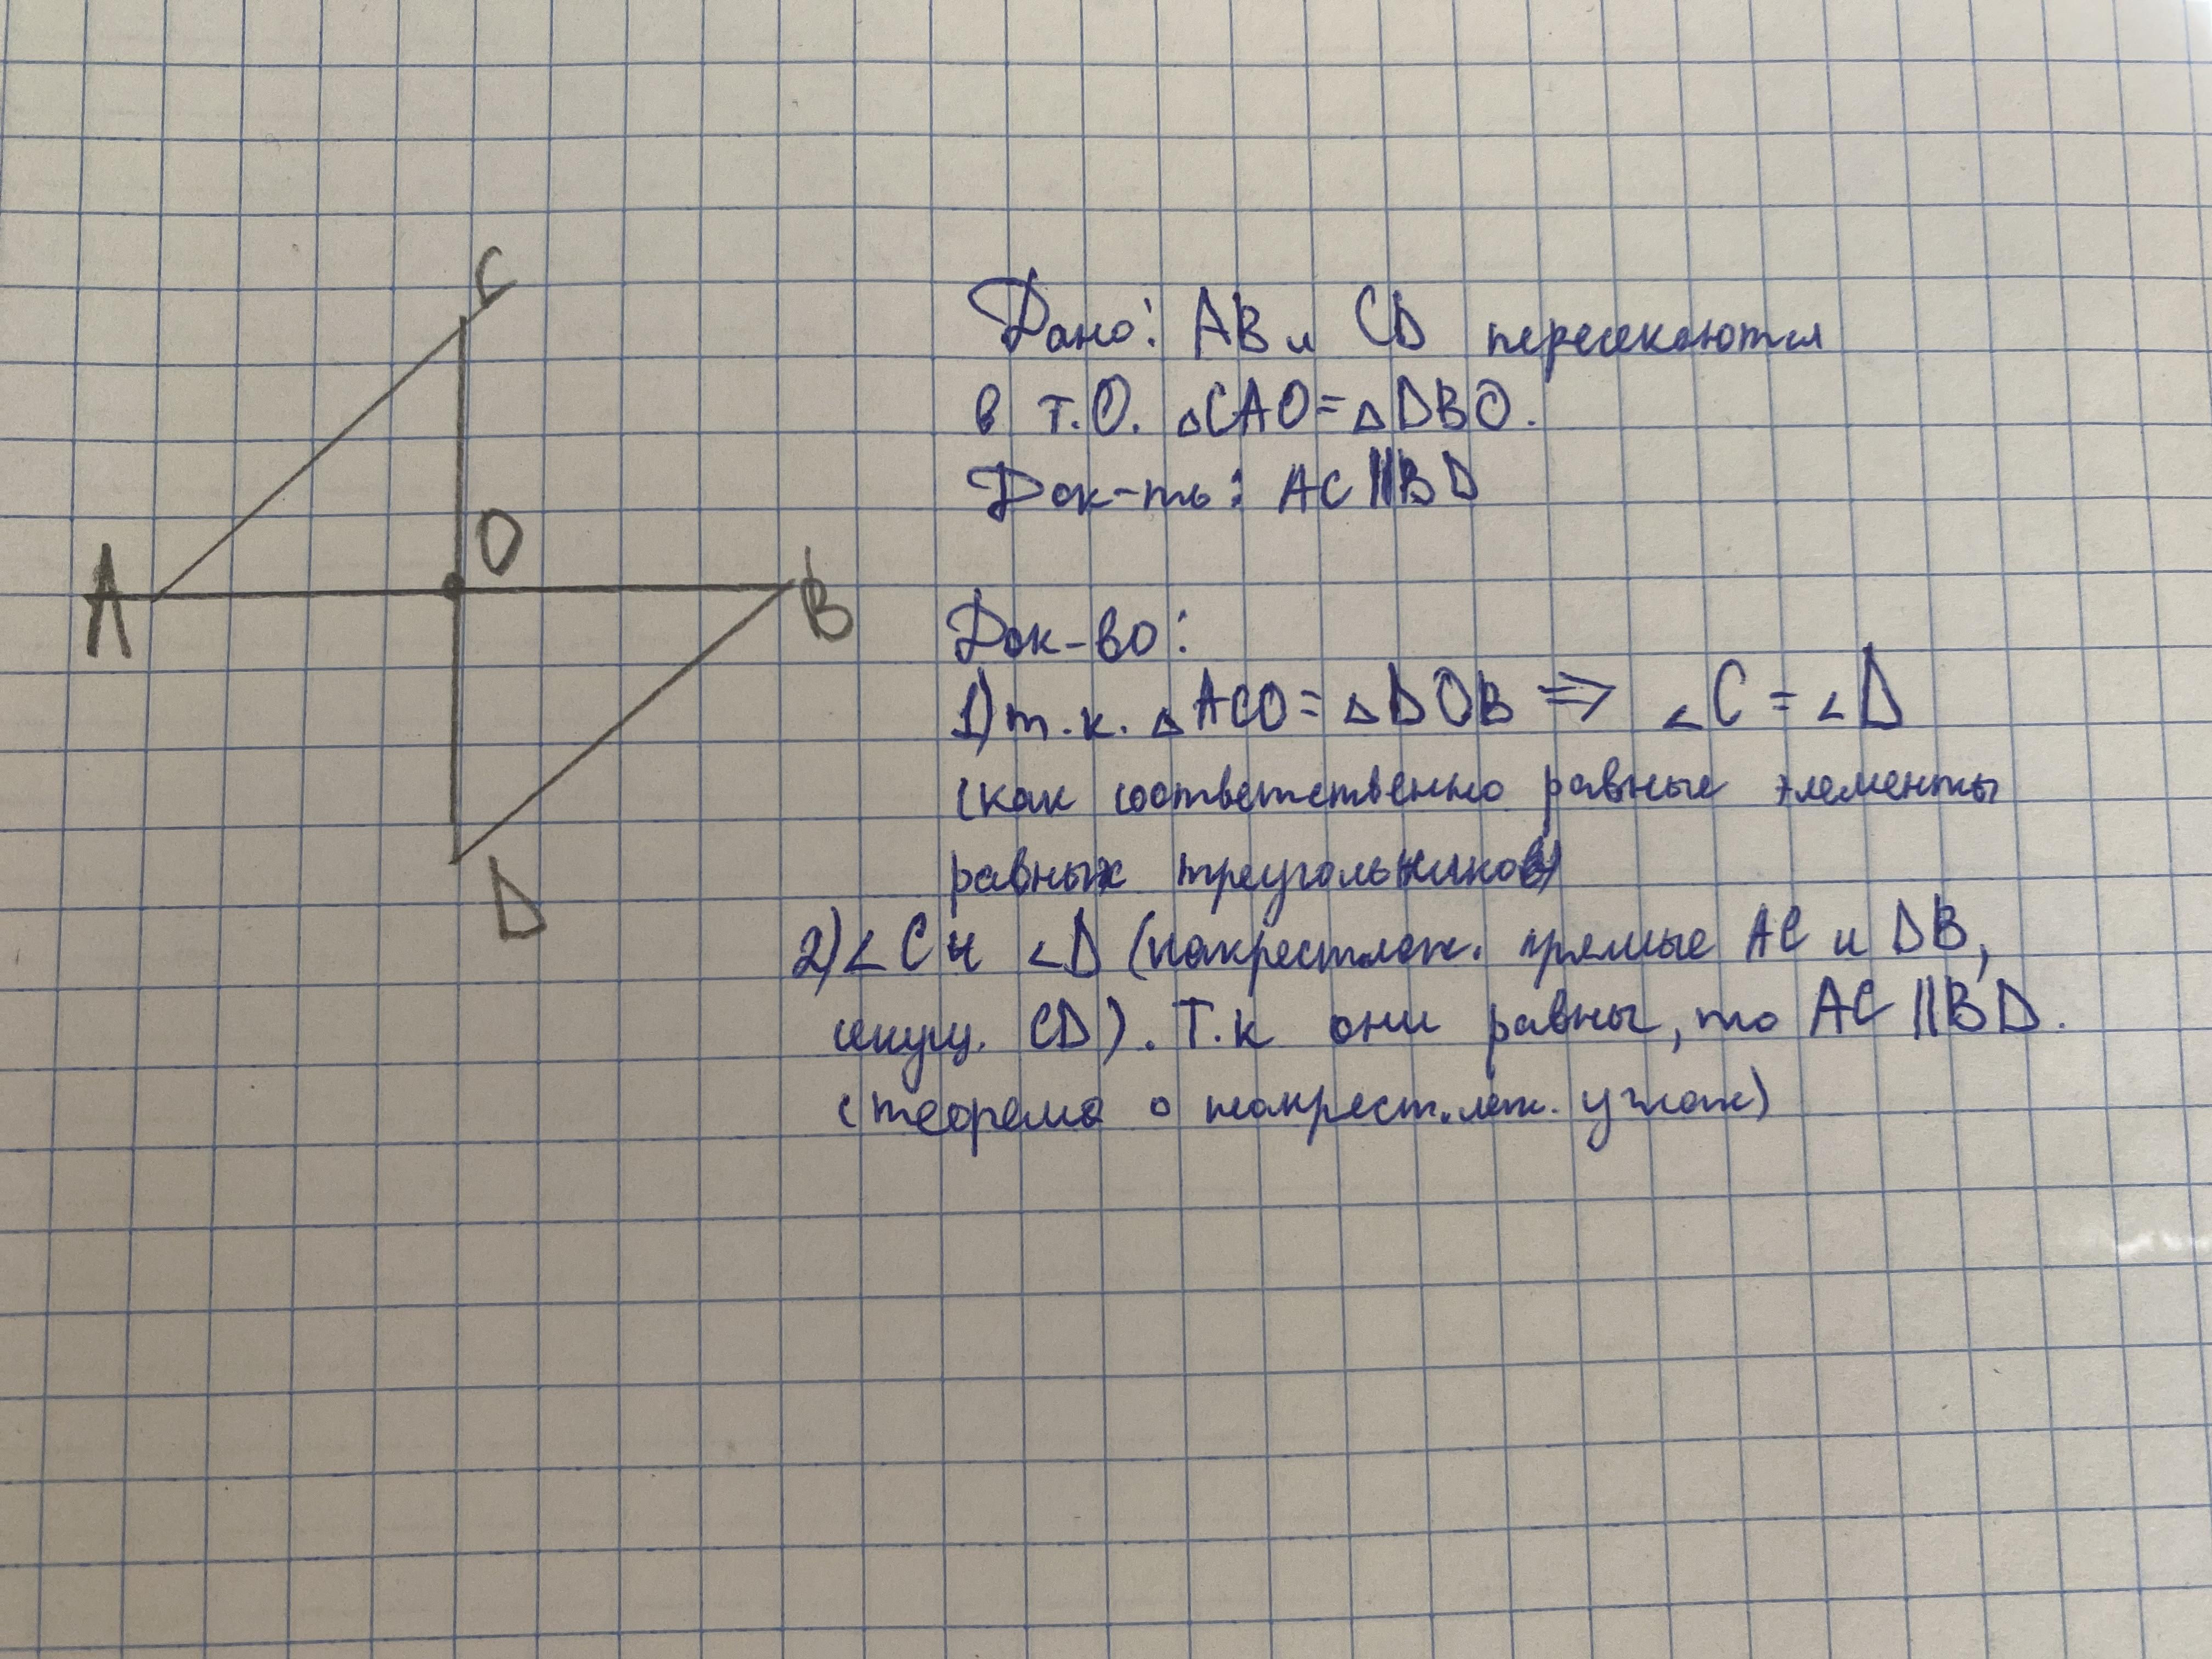 C
O
A
B
D
Дано: AB и CD пересекаются
в т.O. △CAO=△DBO.
Док-ть: AC||BD
Док-во:
1)т.к. △ACO=△DOB ⇒ ∠C=∠D
(как соответственно равные элементы
равных треугольников)
2)∠C и ∠D (накрест.леж. прямые AC и DB,
секущ. CD). Т.к они равны, то AC||BD.
(теорема о накрест.леж. углах)